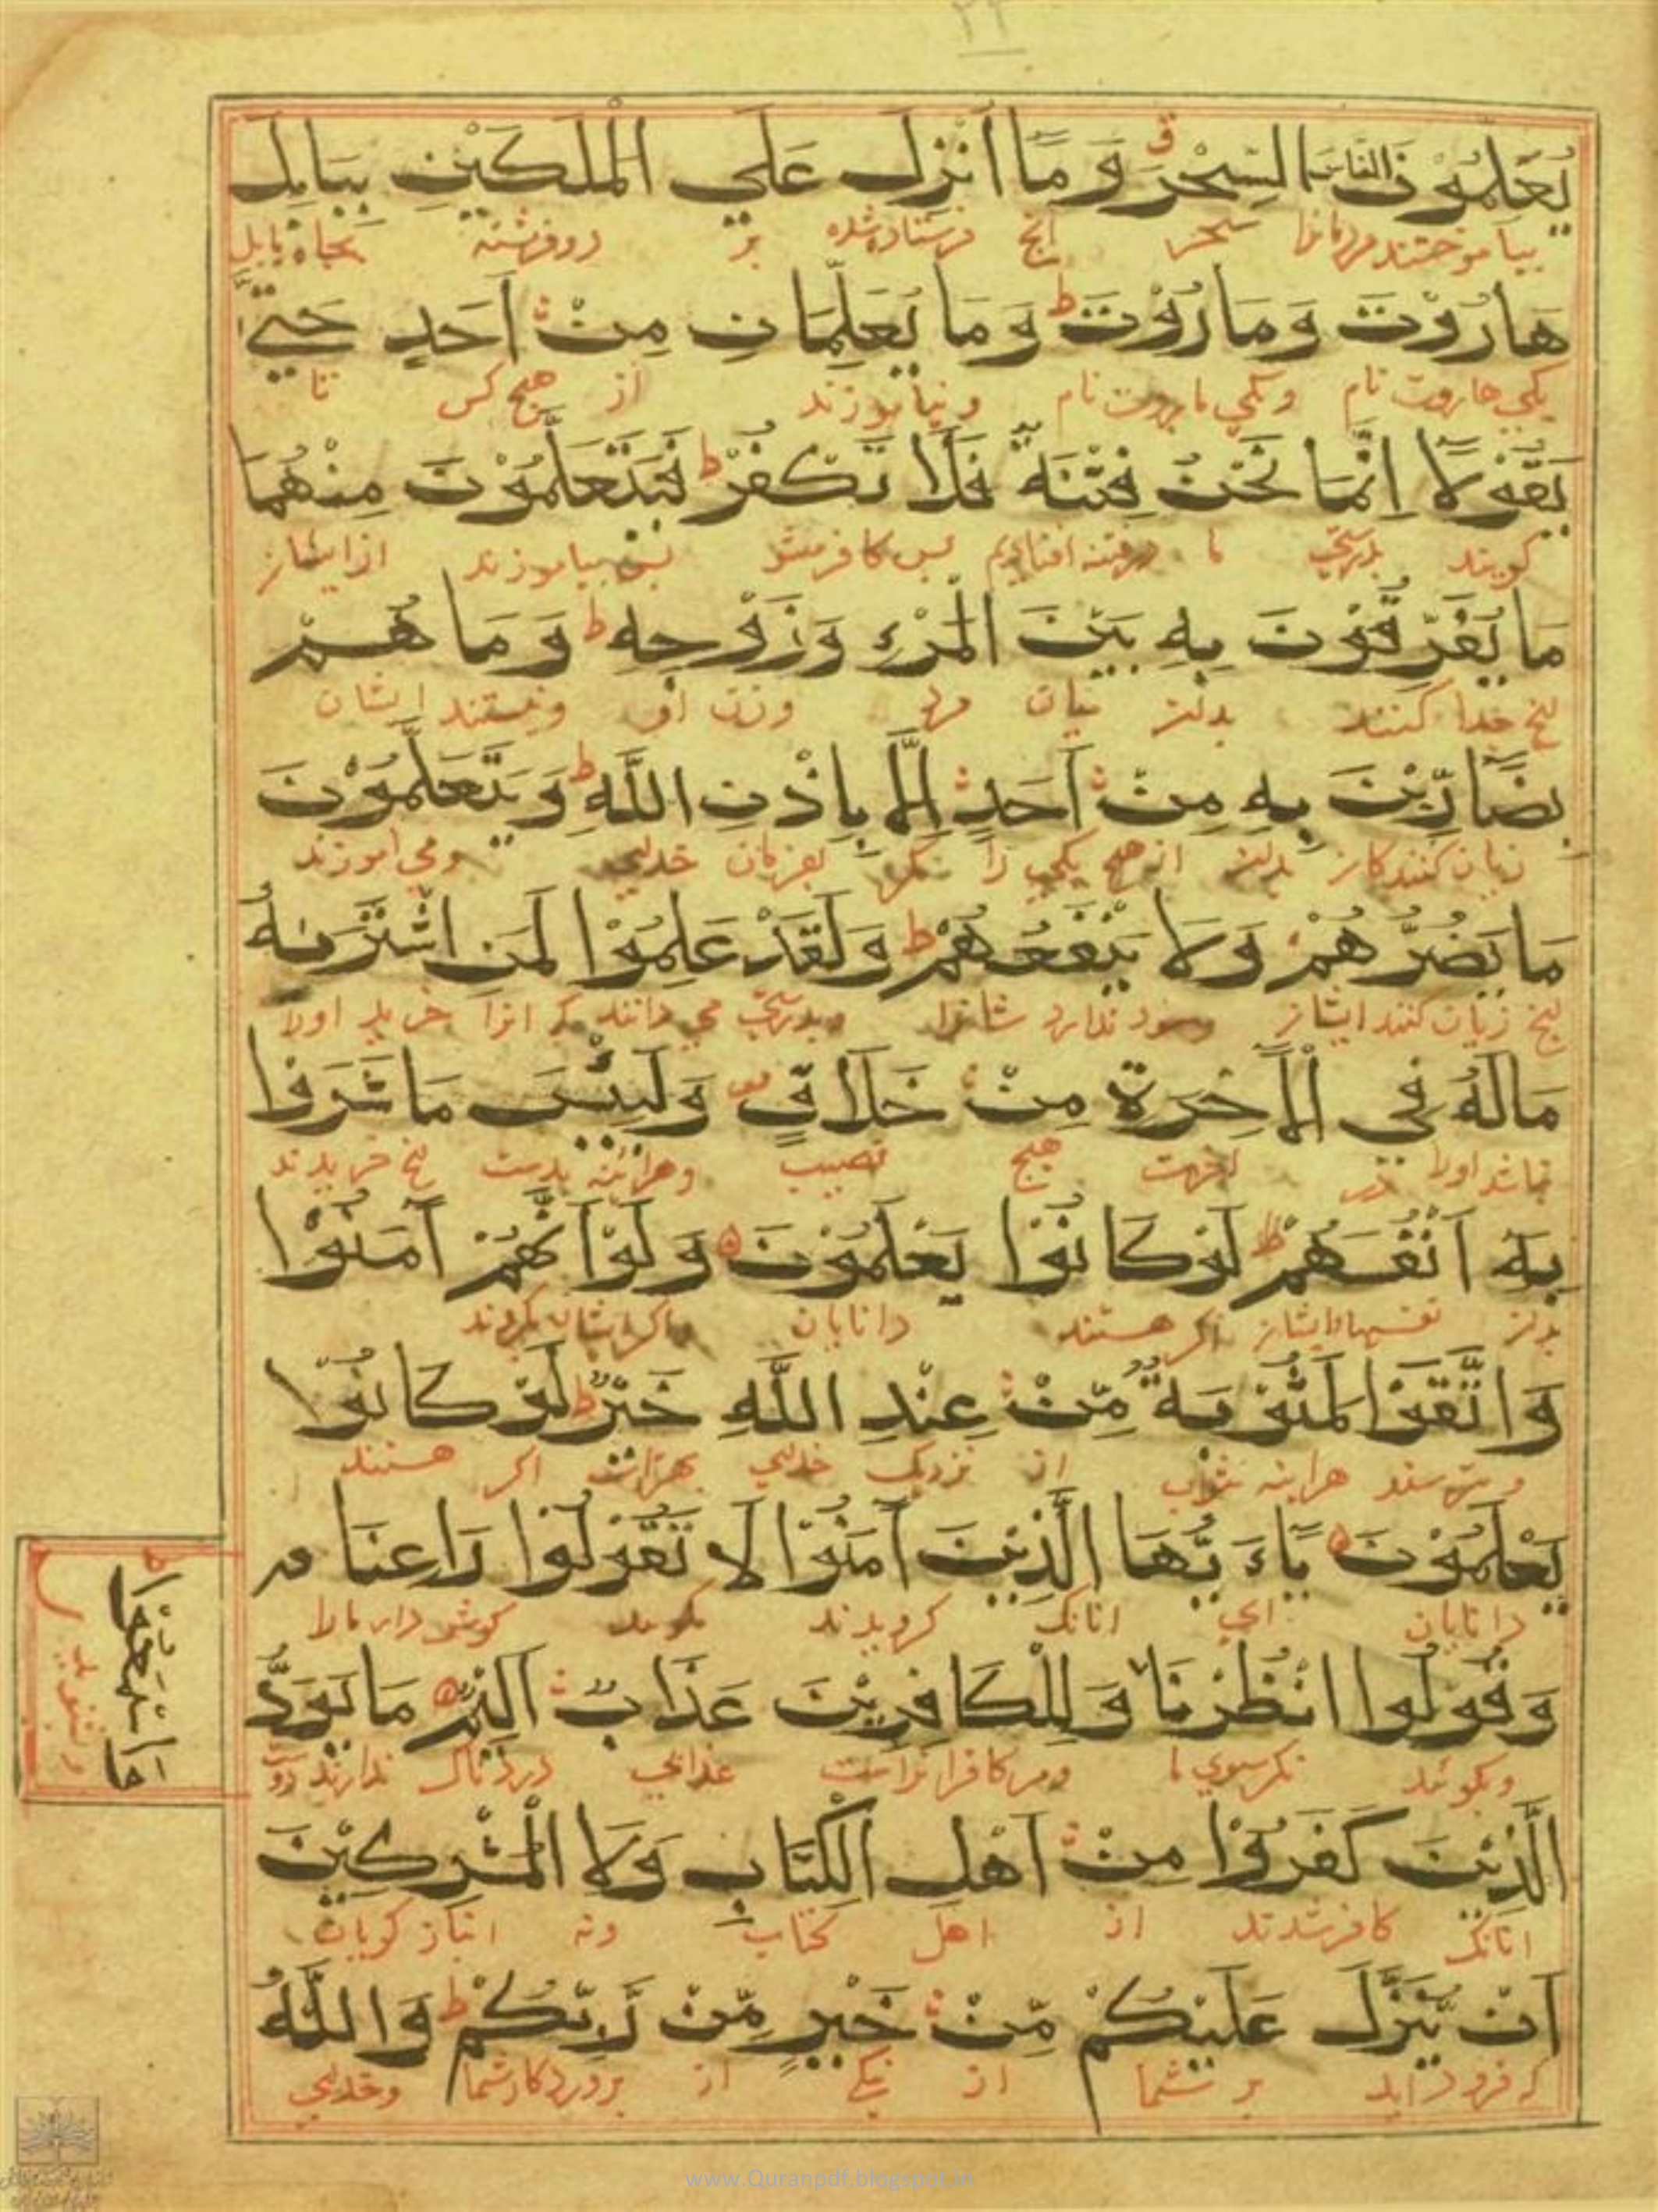 يُعَلِّمُوْنَ النَّاسَ السِّحْرَ ق وَمَا اُنْزِلَ عَلَي الْمَلَكَيْنِ بِبَابِلَ
بیاموختند مردمانرا سحر انچ فرستاده شده بر دو فرشته بچاه بابل
هَارُوْتَ وَمَارُوْتَ ط وَمَا يُعَلِّمَانِ مِنْ اَحَدٍ حَتّٰي
یکی هاروت نام ویکی ماروت نام ونیاموزند از هیچ کس تا
يَقُوْلَا اِنَّمَا نَحْنُ فِتْنَةٌ فَلَا تَكْفُرْ ط فَيَتَعَلَّمُوْنَ مِنْهُمَا
کویند بدرستی ما درفتنه افتادیم بس کافر مشو بس بیاموزند از ایشان
مَا يُفَرِّقُوْنَ بِهٖ بَيْنَ الْمَرْءِ وَزَوْجِهٖ ط وَمَا هُمْ
انچ جدا کنند بدان میان مرد وزن او ونیستند ایشان
بِضَآرِّيْنَ بِهٖ مِنْ اَحَدٍ اِلَّا بِاِذْنِ اللَّهِ ط وَيَتَعَلَّمُوْنَ
زیان کنندکان بدان از هیچ یکی را مکر بفرمان خدای ومی اموزند
مَا يَضُرُّهُمْ وَلَا يَنْفَعُهُمْ ط وَلَقَدْ عَلِمُوْا لَمَنِ اشْتَرٰىهُ
انچ زیان کنند ایشان وسود ندارد شانرا وبدرستی می دانند که انرا خرید اورا
مَا لَهُ فِي الْاٰخِرَةِ مِنْ خَلَاقٍ وَلَبِئْسَ مَا شَرَوْا
نباشد اورا در اخرت هیچ نصیب وهراینه بدست انچ خریدند
بِهٖ اَنْفُسَهُمْ ط لَوْ كَانُوْا يَعْلَمُوْنَ ۵ وَلَوْ اَنَّهُمْ آمَنُوْا
بدان نفسهاء ایشان اکر هستند دانایان واکر ایشان بکروند
وَاتَّقَوْا لَمَثُوْبَةٌ مِّنْ عِنْدِ اللَّهِ خَيْرٌ ط لَوْ كَانُوْا
وبترسند هراینه ثواب از نزدیک خدای بهترست اکر هستند
يَعْلَمُوْنَ ۵ يَاءَيُّهَا الَّذِيْنَ آمَنُوْا لَا تَقُوْلُوْا رَاعِنَا
دانایان ای انانک کرویدند مکویید کوش دار مارا
وَقُوْلُوا انْظُرْنَا وَلِلْكَافِرِيْنَ عَذَابٌ اَلِيْمٌ ۵ مَا يَوَدُّ
وبکوئید نکر سوی ما ومر کافرانراست عذابی دردناک ندارند دوست
الَّذِيْنَ كَفَرُوْا مِنْ اَهْلِ الْكِتَابِ وَلَا الْمُشْرِكِيْنَ
انانک کافر شدند از اهل کتاب ونه انباز کویان
اَنْ يُّنَزَّلَ عَلَيْكُمْ مِّنْ خَيْرٍ مِّنْ رَّبِّكُمْ ط وَاللَّهُ
که فرود اید بر شما از نیکی از پروردکار شما وخدای
وَاسْمَعُوْا ط
وبشنوید
www.Quranpdf.blogspot.in